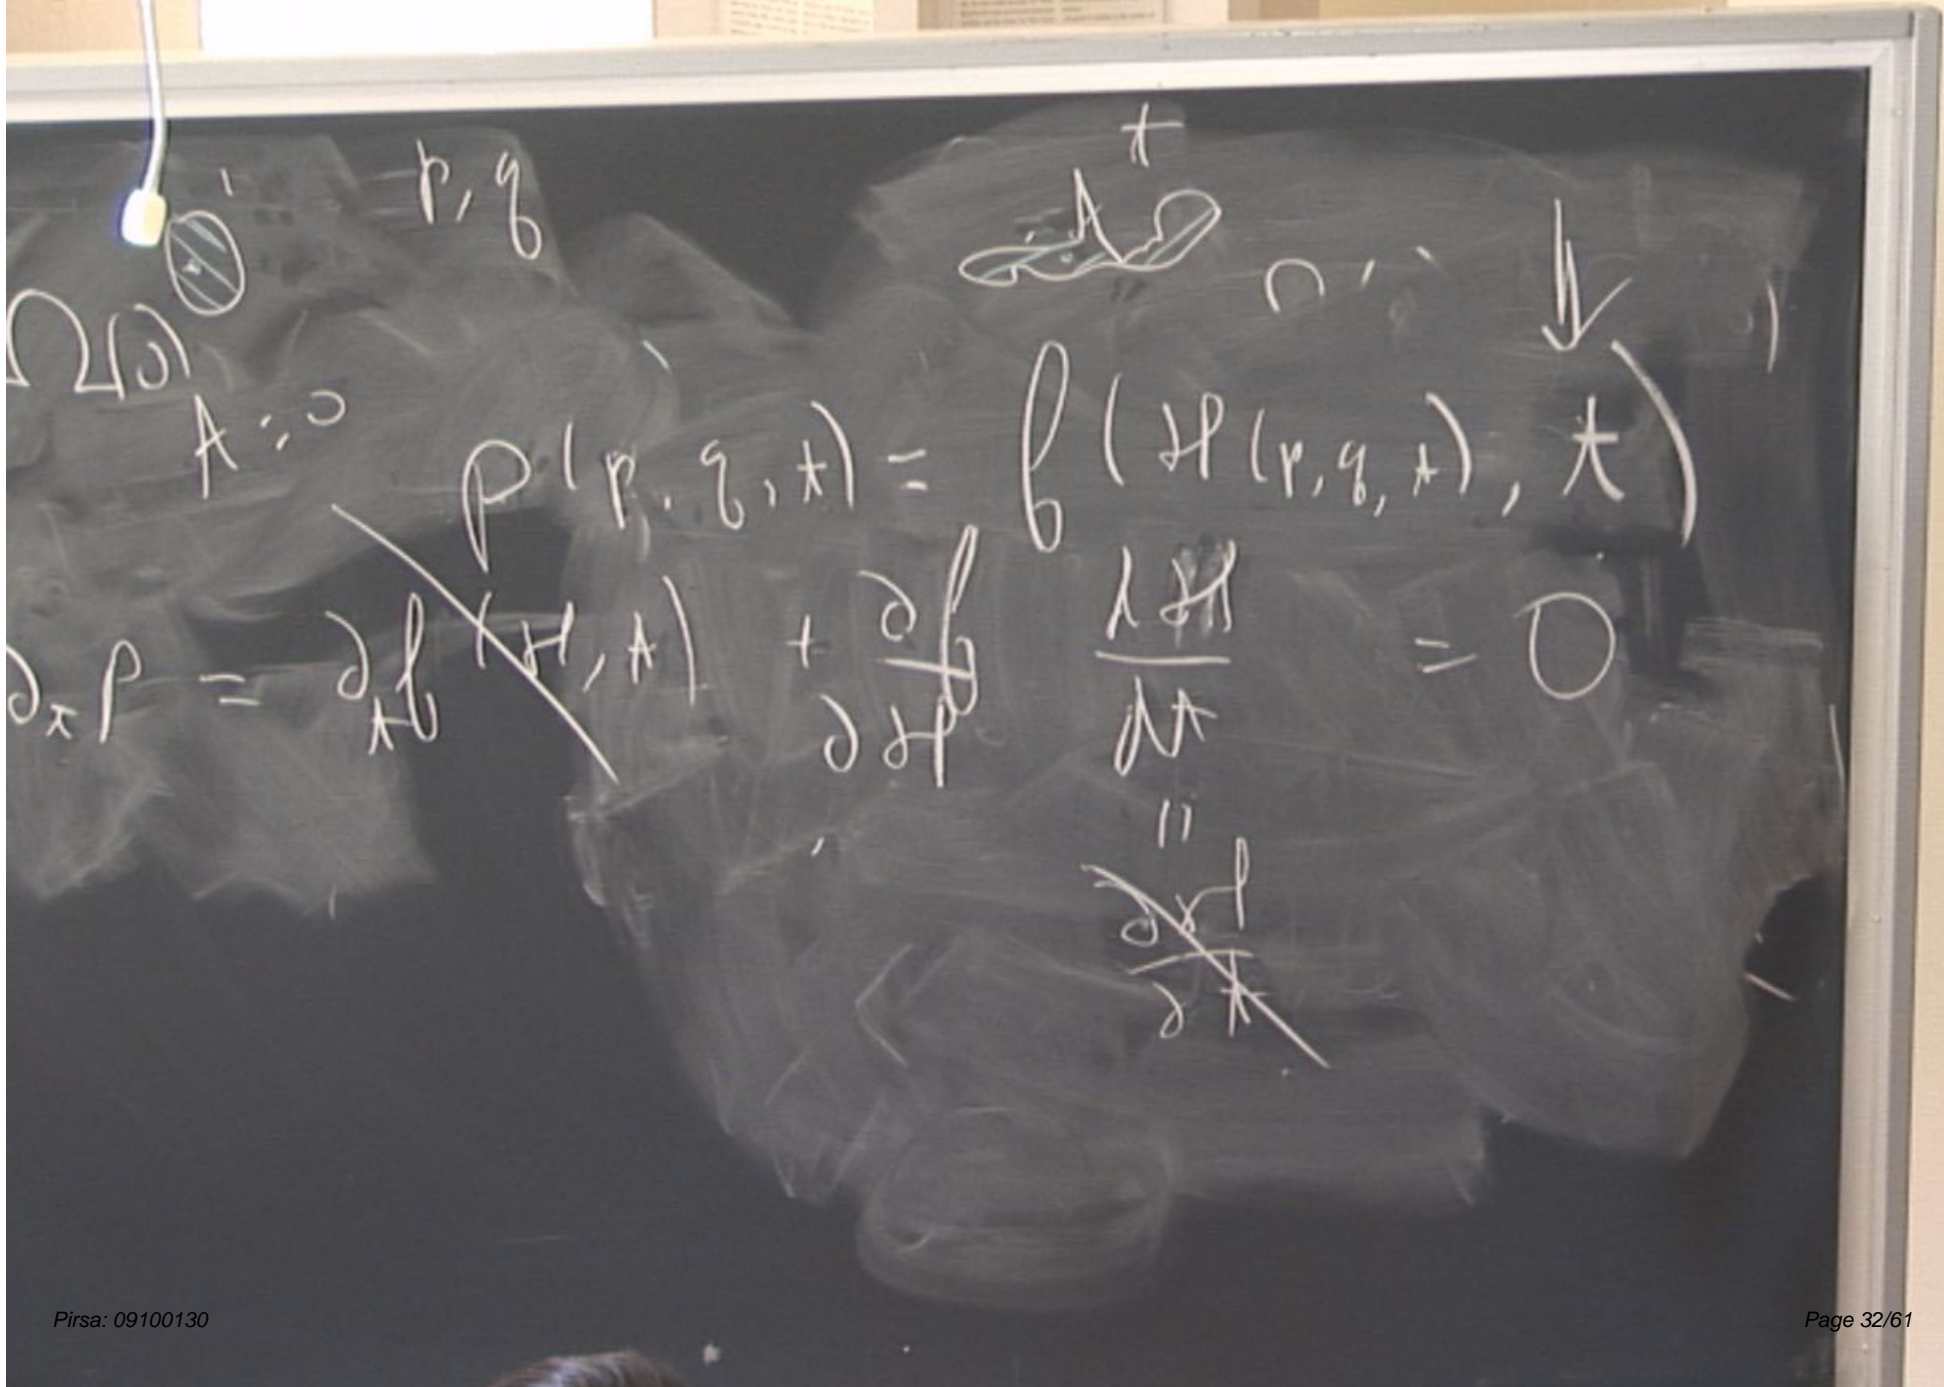 p, q
t
A
Ω(0)
t=0
ρ(p, q, t) = f(H(p, q, t), t)
∂ₜρ = ∂ₜf(H, t) + ∂f/∂H dH/dt = 0
"
∂H/∂t
Pirsa: 09100130
Page 32/61